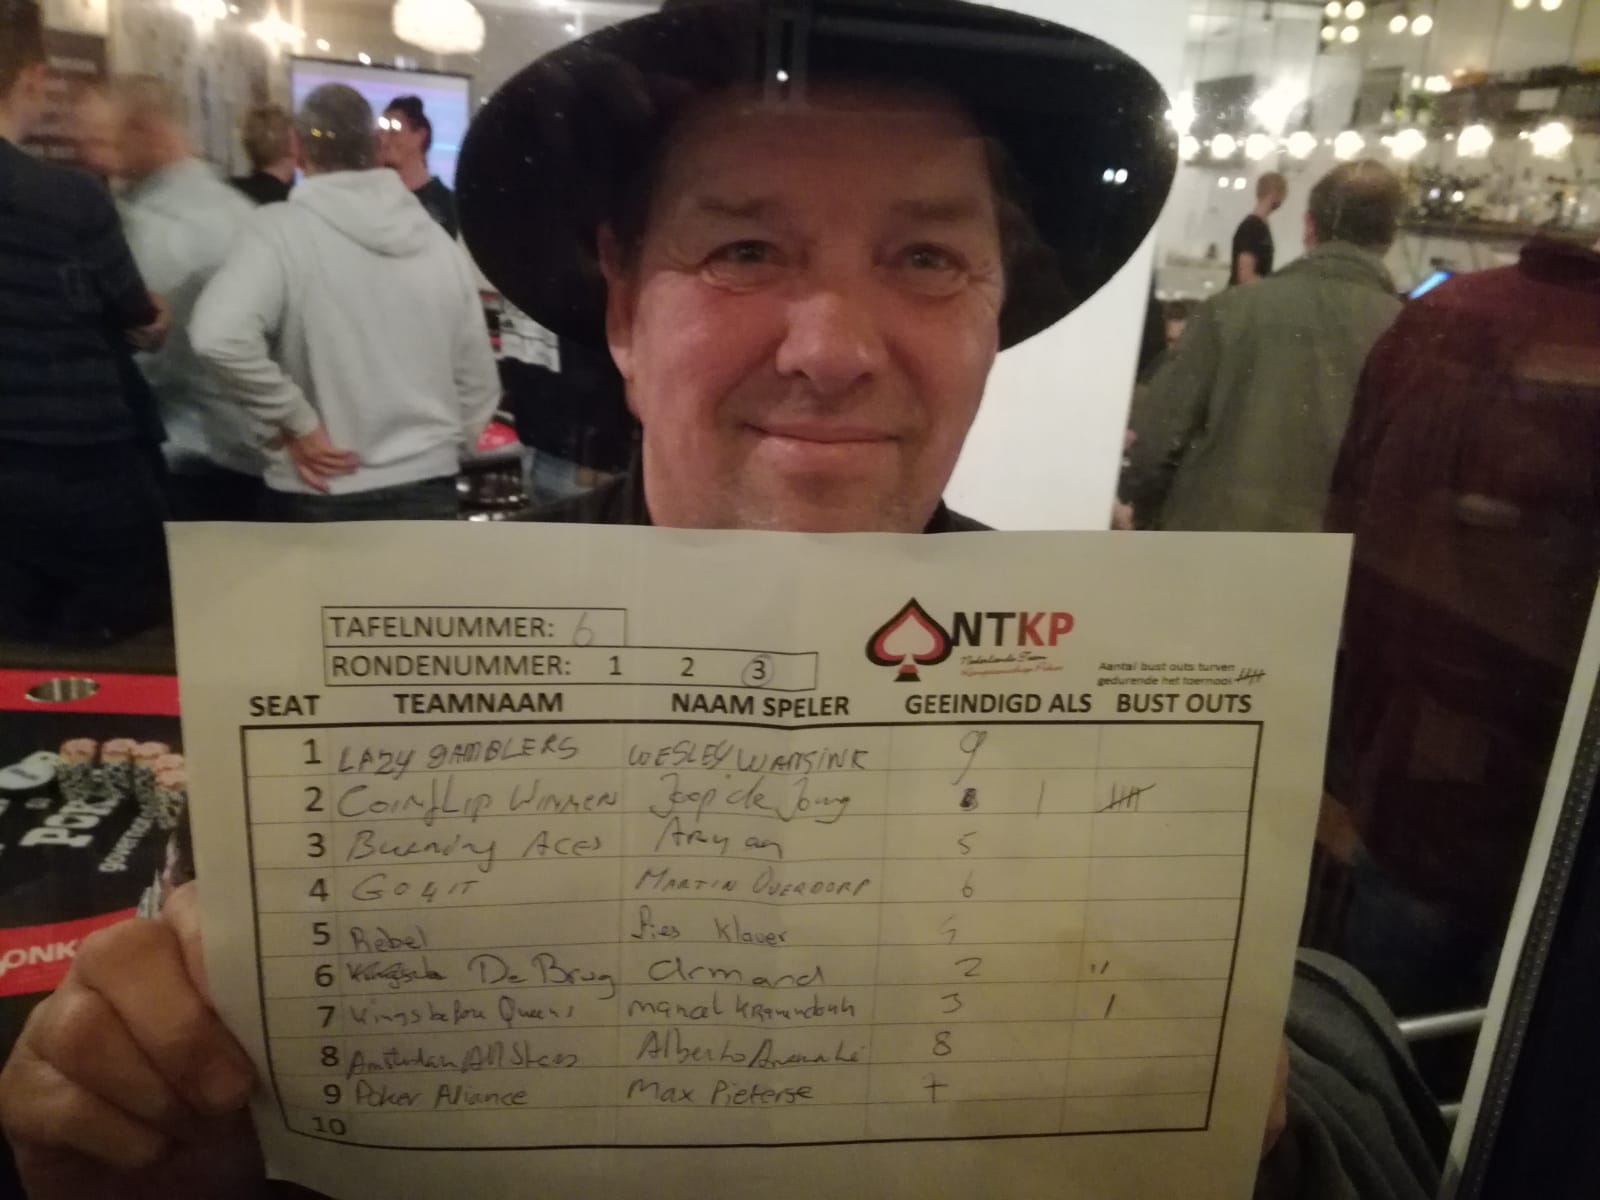 TAFELNUMMER: 6
RONDENUMMER: 1 2 3
NTKP
Nederlands Team
Kampioenschap Poker
Aantal bust outs turven
gedurende het toernooi
SEAT TEAMNAAM NAAM SPELER GEEINDIGD ALS BUST OUTS
1 LAZY GAMBLERS WESLEY WANSINK 9
2 COINFLIP WINNEN Joop de Jong 1 |||||
3 Burning Aces Aryan 5
4 GO 4 IT MARTIN OVERDORP 6
5 Rebel Sies Klaver
6 De Brug Armand 2 ''
7 Kings before Queens Marcel 3 |
8 Amsterdam All Stars Alberto 8
9 Poker Aliance Max Pieterse 7
10
PO
ONK